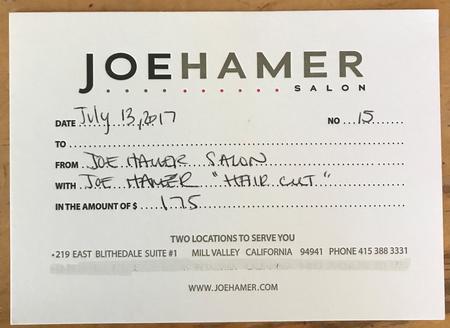 JOEHAMER
SALON
DATE July 13, 2017 NO 15
TO
FROM JOE HAMER SALON
WITH JOE HAMER "HAIR CUT"
IN THE AMOUNT OF $ 175
TWO LOCATIONS TO SERVE YOU
•219 EAST BLITHEDALE SUITE #1 MILL VALLEY CALIFORNIA 94941 PHONE 415 388 3331
WWW.JOEHAMER.COM